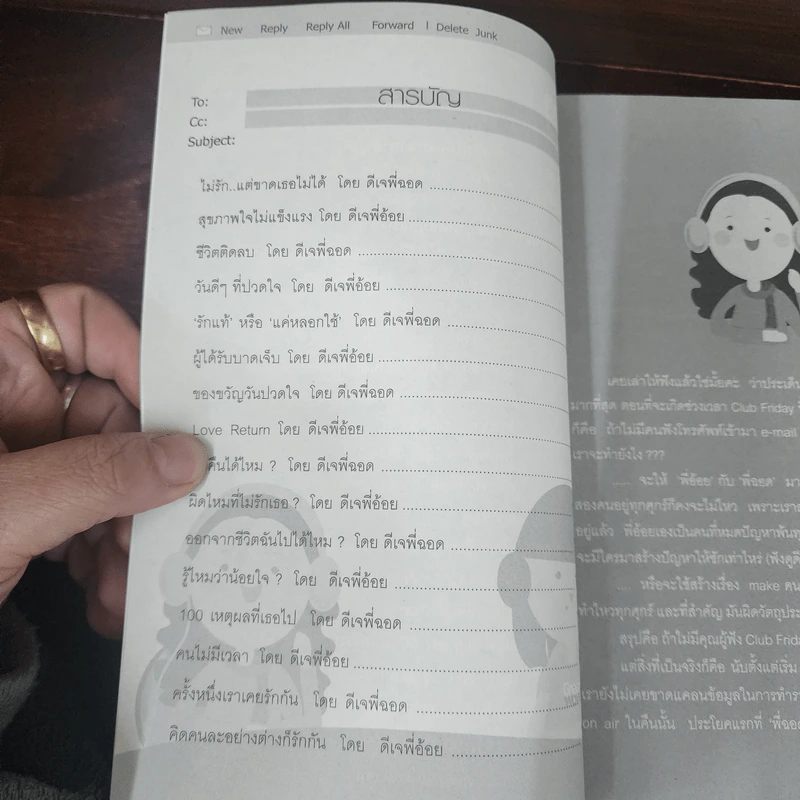 New Reply Reply All Forward | Delete Junk
To:
สารบัญ
Cc:
Subject:
ไม่รัก..แต่ขาดเธอไม่ได้ โดย ดีเจพี่ฉอด
สุขภาพใจไม่แข็งแรง โดย ดีเจพี่อ้อย
ชีวิตติดลบ โดย ดีเจพี่ฉอด
วันดีๆ ที่ปวดใจ โดย ดีเจพี่อ้อย
'รักแท้' หรือ 'แค่หลอกใช้' โดย ดีเจพี่ฉอด
ผู้ได้รับบาดเจ็บ โดย ดีเจพี่อ้อย
ของขวัญวันปวดใจ โดย ดีเจพี่ฉอด
Love Return โดย ดีเจพี่อ้อย
คืนได้ไหม ? โดย ดีเจพี่ฉอด
ผิดไหมที่ไม่รักเธอ ? โดย ดีเจพี่อ้อย
ออกจากชีวิตฉันไปได้ไหม ? โดย ดีเจพี่ฉอด
รู้ไหมว่าน้อยใจ ? โดย ดีเจพี่อ้อย
100 เหตุผลที่เธอไป โดย ดีเจพี่ฉอด
คนไม่มีเวลา โดย ดีเจพี่อ้อย
ครั้งหนึ่งเราเคยรักกัน โดย ดีเจพี่ฉอด
คิดคนละอย่างต่างก็รักกัน โดย ดีเจพี่อ้อย
เคยเล่าให้ฟังแล้วใช่มั้ยคะ ว่าประเด็น
มากที่สุด ตอนที่จะเกิดช่วงเวลา Club Friday
ก็คือ ถ้าไม่มีคนฟังโทรศัพท์เข้ามา e-mail
เราจะทำยังไง ???
.... จะให้ 'พี่อ้อย' กับ 'พี่ฉอด' มา
สองคนอยู่ทุกศุกร์ก็คงจะไม่ไหว เพราะเรา
อยู่แล้ว พี่อ้อยเองเป็นคนที่หมดปัญหาพัน
จะมีใครมาสร้างปัญหาให้ซักเท่าไหร่ (ฟังดูดี
.... หรือจะใช้สร้างเรื่อง make คน
ทำไหวทุกศุกร์ และที่สำคัญ มันผิดวัตถุประ
สรุปคือ ถ้าไม่มีคุณผู้ฟัง Club Frida
แต่สิ่งที่เป็นจริงก็คือ นับตั้งแต่เริ่ม
เรายังไม่เคยขาดแคลนข้อมูลในการทำรา
on air ในคืนนั้น ประโยคแรกที่ 'พี่ฉอด